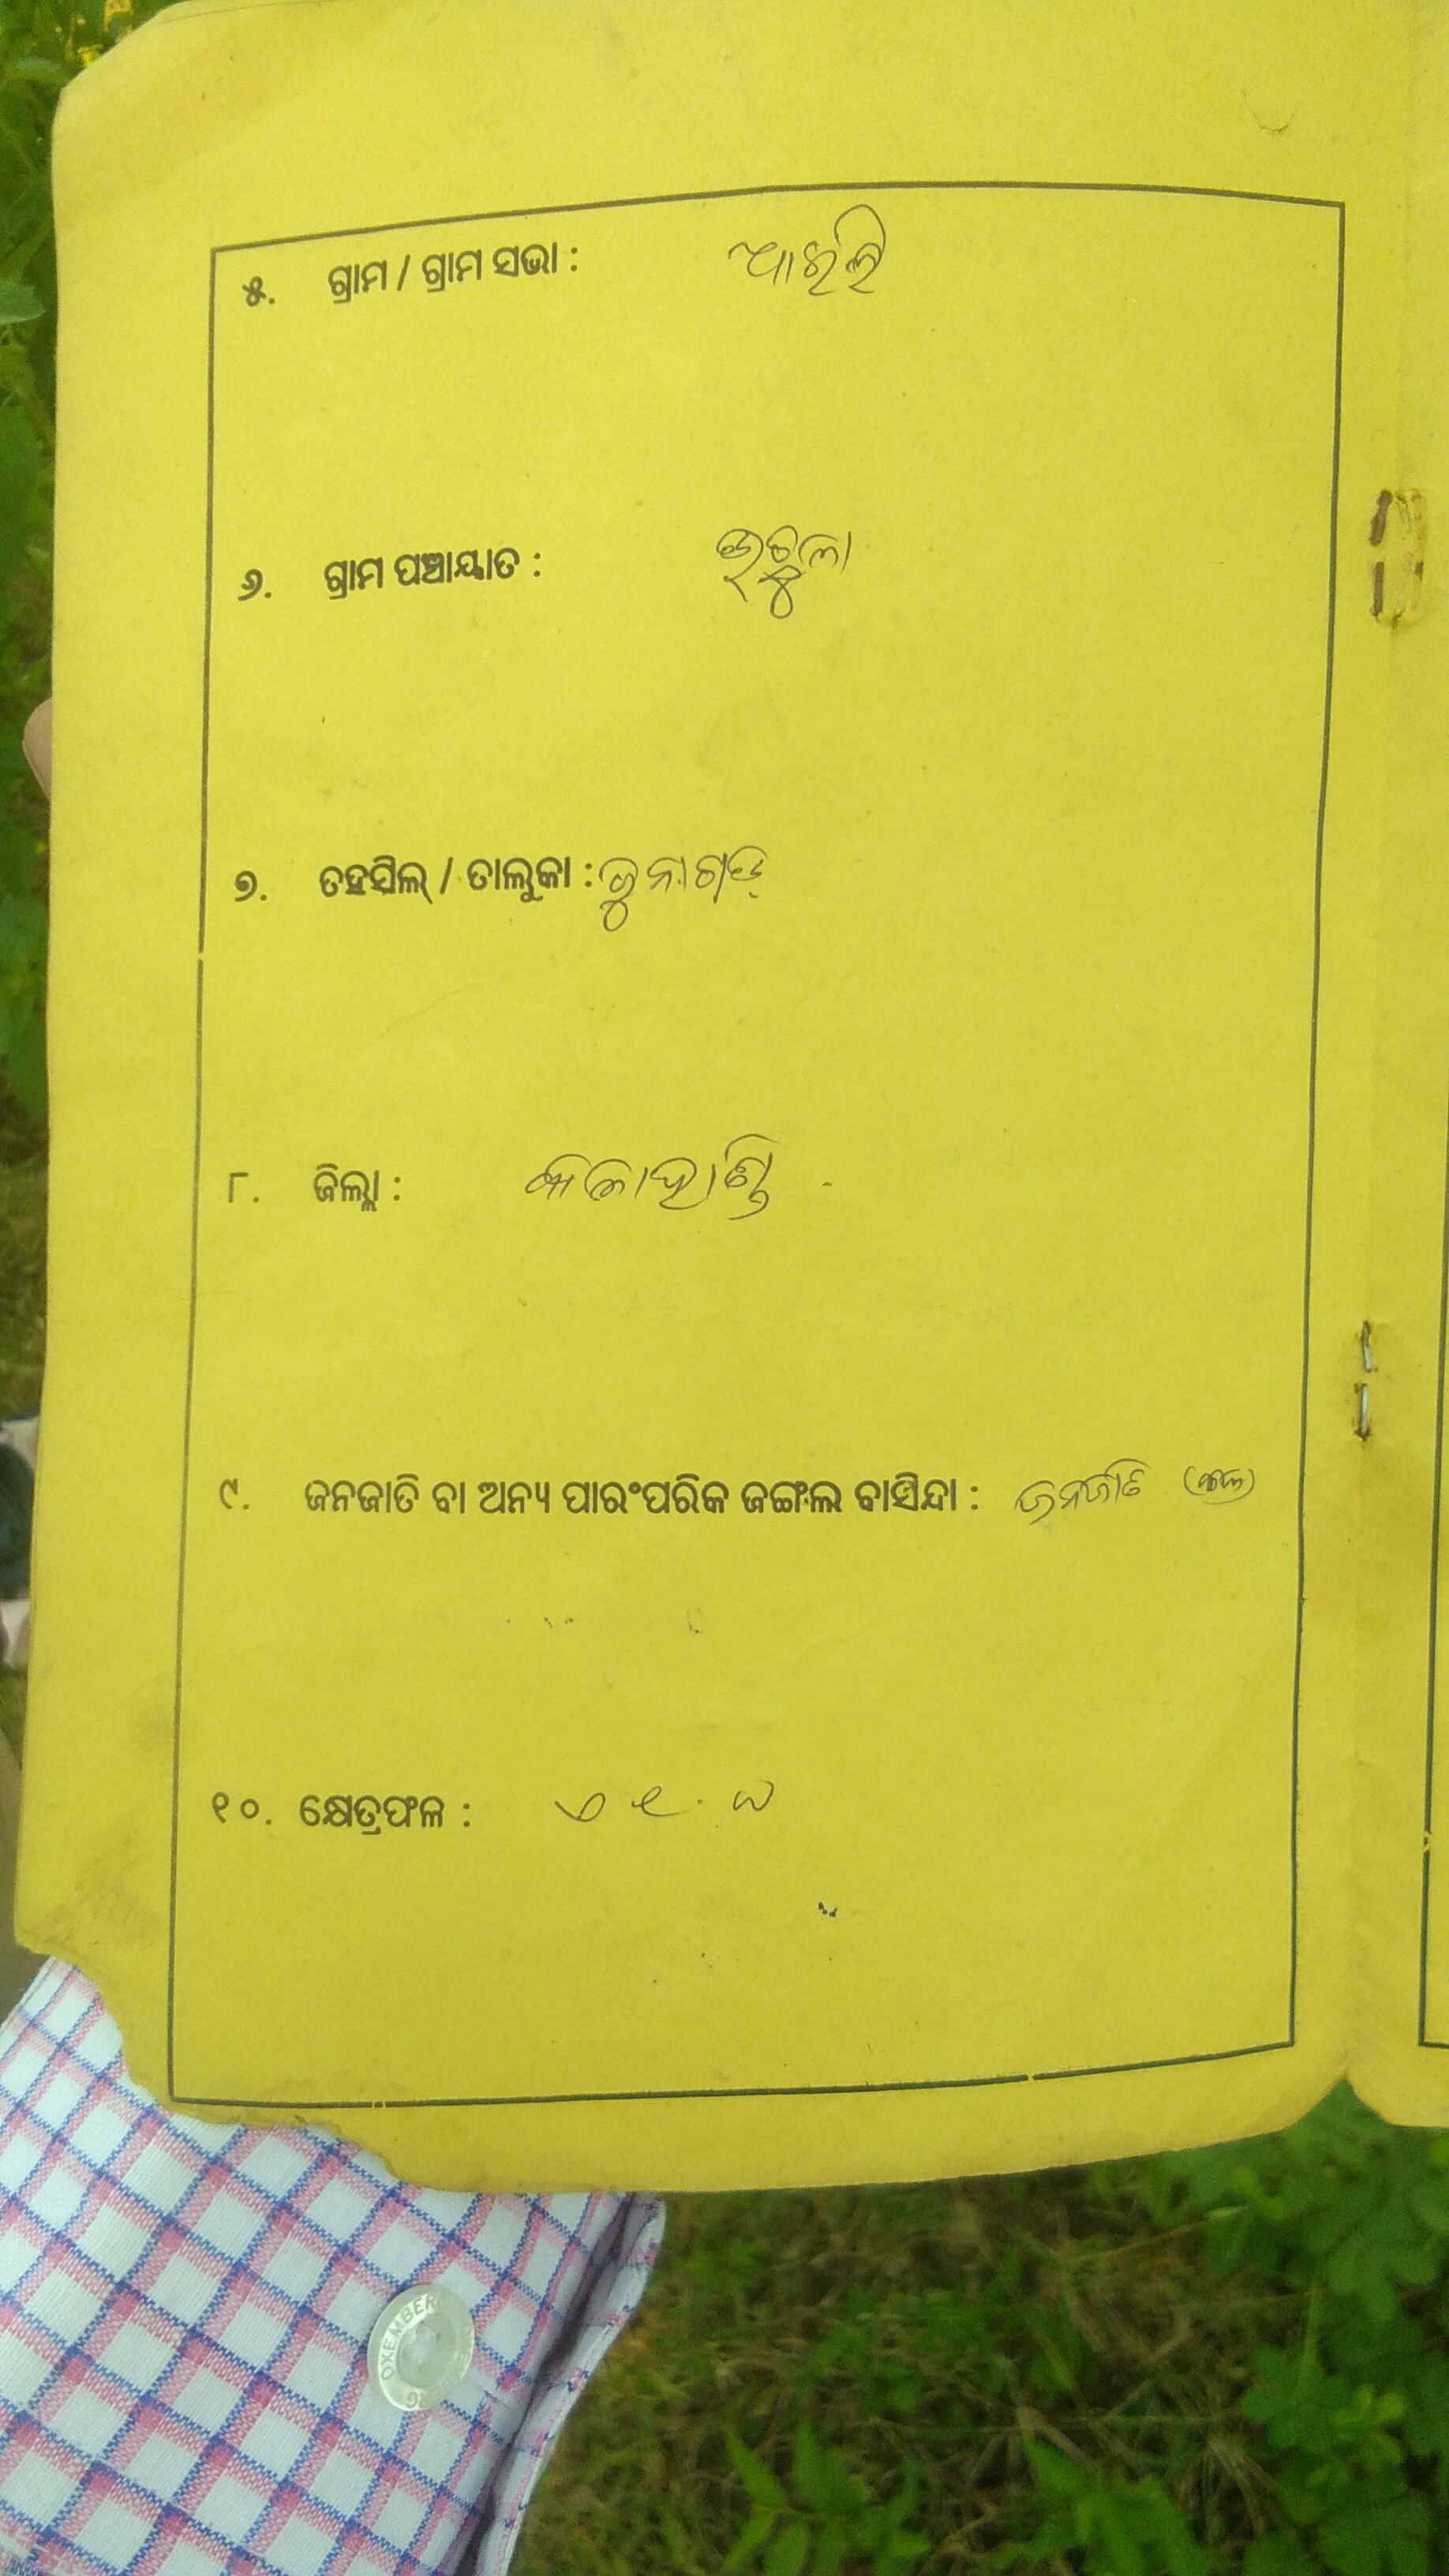 ୫. ଗ୍ରାମ / ଗ୍ରାମ ସଭା : ଆରଲି
୬. ଗ୍ରାମ ପଞ୍ଚାୟାତ :
୭. ତହସିଲ୍ / ତାଲୁକା : ଜୁନାଗଡ଼
୮. ଜିଲ୍ଲା : କଳାହାଣ୍ଡି
୯. ଜନଜାତି ବା ଅନ୍ୟ ପାରଂପରିକ ଜଙ୍ଗଲ ବାସିନ୍ଦା : ଜନଜାତି
୧୦. କ୍ଷେତ୍ରଫଳ :
OXEMBERG